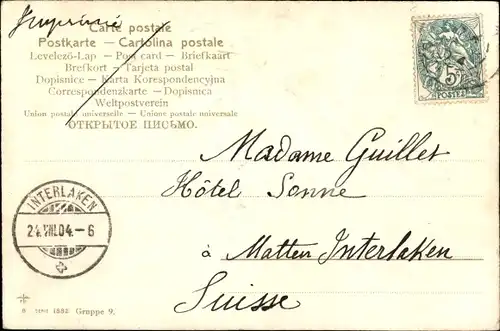 Imprimé
Carte postale
Postkarte — Cartolina postale
Levelező-Lap — Post card — Briefkaart
Brefkort — Tarjeta postal
Dopisnice — Karta Korespondencyjna
Correspondenzkarte — Dopisnica
Weltpostverein
Union postale universelle — Unione postale universale
ОТКРЫТОЕ ПИСЬМО.
5
POSTES
Madame Guillet
Hôtel Sonne
à Matten Interlaken
Suisse
INTERLAKEN
21.VIII.04.-6
Gruppe 9.